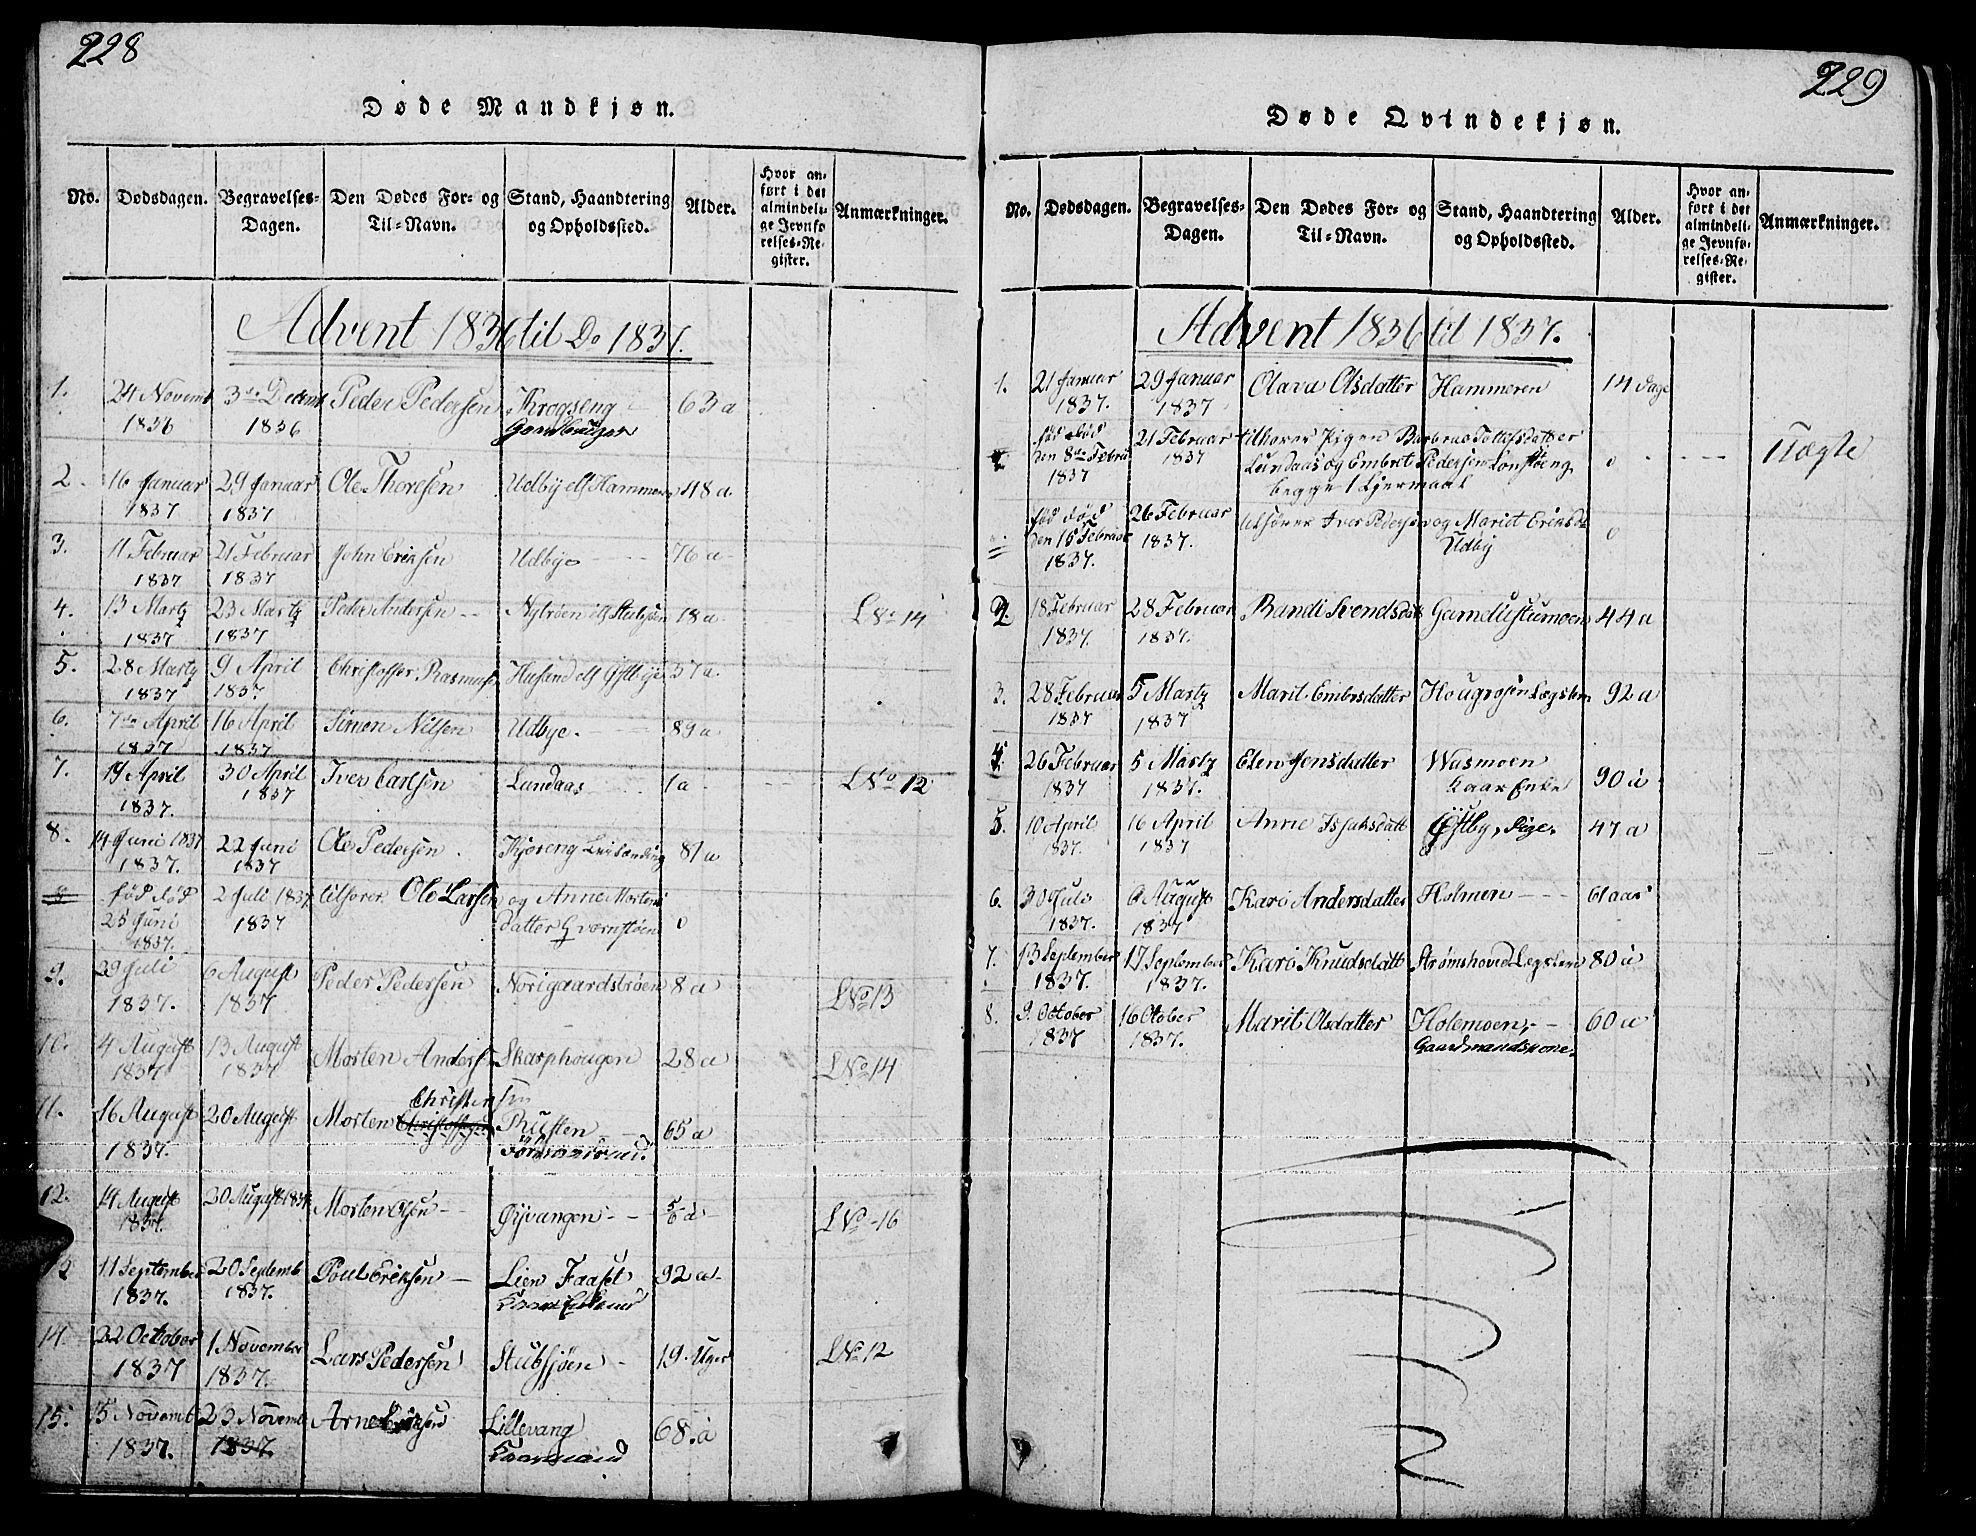 228
Døde Mandkjøn.
No. Dødsdagen. Begravelses-Dagen. Den Dødes For- og Til-Navn. Stand, Haandtering og Opholdssted. Alder. Hvor anført i det almindelige Jevnførelses-Register. Anmærkninger.
Advent 1836 til Do 1837.
1. 24 Novemb 1836 3de Decemb 1836 Peder Pedersen Krogseng 63 a
2. 16 Januar 1837 29 Januar 1837 Ole Thoresen Udby 48 a
3. 11 Februar 1837 21 Februar 1837 John Eriksen Udbye 76 a
4. 13 Martz 1837 23 Martz 1837 Peder Andersen 18 a LNo 14
5. 28 Martz 1837 9 April 1837 Christoffer Rasmusen 37 a
6. 7de April 1837 16 April 1837 Simon Nilsen Udbye. 89 a
7. 14 April 1837. 30 April 1837 Iver Carlsen Lundaas 1 a LNo 12
8. 14 Juni 1837 1837. 22 Juni 1837 Ole Pedersen 81 a
død fød 25 Juni 1837. 2 Juli 1837 1837 tilhører Ole Larsen og Anne Mortens datter 0
9. 29 Juli 1837. 6 August 1837 Peder Pedersen Norigaardstrøen 8 a LNo 13
10. 4 August 1837 13 August 1837 Morten Anders Skarphougen 28 a LNo 14
11. 16 August 1837. 20 August Morten Christensen Rusten 65 a
12. 14 August 1837. 20 August 1837 Morten Olsen Øyvangen 5/6 a LNo 16
13 11 September 1837. 20 Septemb 1837. Poul Eriksen Lien Faaset 92 a
14. 22 October 1837 1 November 1837. Lars Pedersen Stubsjøen 19 Uger LNo 12
15. 15 Novemb 1837. 23 Novemb 1837. Arne Lillevang Kaarmand 68 a
229
Døde Qvindekjøn.
No. Dødsdagen. Begravelses-Dagen. Den Dødes For- og Til-Navn. Stand, Haandtering og Opholdssted. Alder. Hvor anført i det almindelige Jevnførelses-Register. Anmærkninger.
Advent 1836 til 1837.
1. 21 Januar 1837. 29 Januar 1837 Olava Olsdatter Hammeren 14 Dage
fød død den 8de Febru 1837 21 Februar 1837 tilhører Pigen Barbraa Lundaas og Embret Pedersen begge 1 Leiermaal 0 Uægte
fød død den 15 Februar 1837. 26 Februar 1837. tilhører Iver Pedersen og Marit Eriksd Udby 0
2. 18 Februar 1837. 28 Februar 1837. Randi Svendsdat Gamdlistumoen 44 a
3. 28 Februar 1837 5 Martz 1837 Marit Embrsdatter Hougrosen Lægslem 92 a
4. 26 Februar 1837 5 Martz 1837. Elen Jensdatter Wasmoen Kaar Enke 90 a
5. 10 April 1837. 16 April 1837 Anne Isaksdatt Østby, Pige. 47 a
6. 30 Juli 1837. 6 August 1837 Kari Andersdatter Holmen 61 aar
7. 13 September 1837. 17 September 1837. Kari Knudsdatt Strømshoved Legslem 80 a
8. 9. October 1837 16 Otober 1837. Marit Olsdatter Holemoen, Gaardmandskone. 60 a